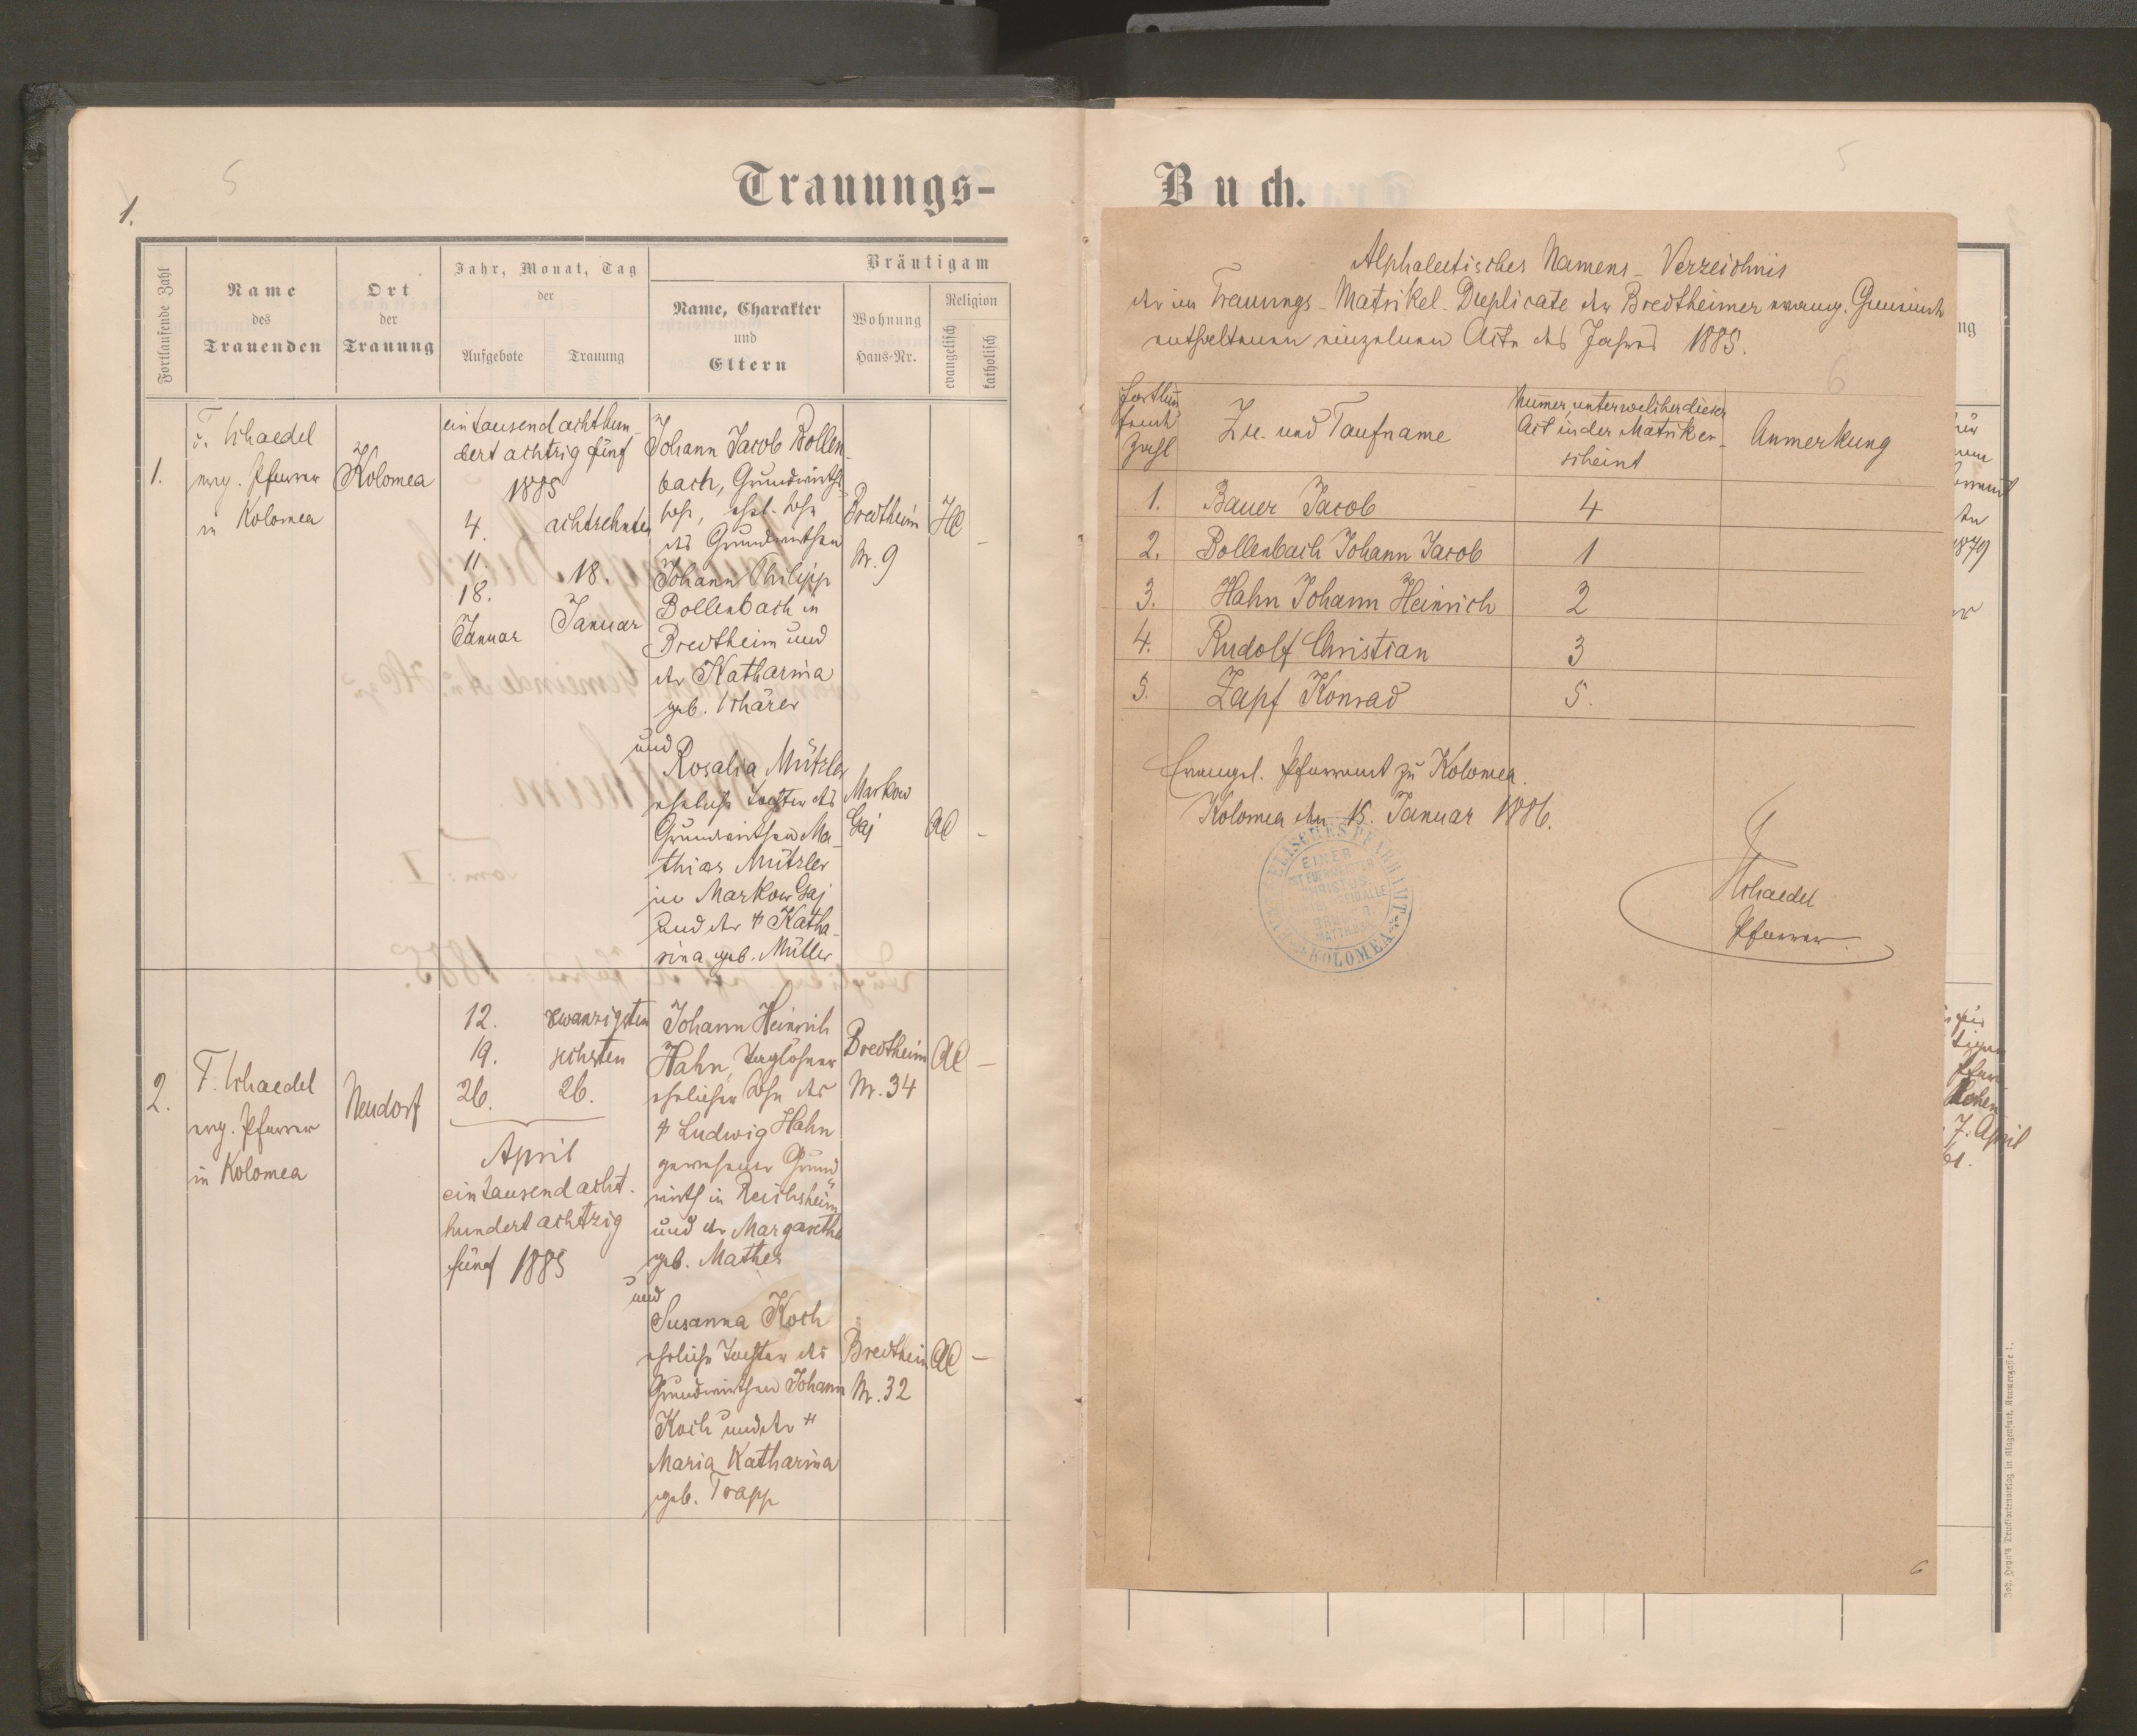 5
1.
Trauungs-
Fortlaufende Zahl
Name
des
Trauenden
Ort
der
Trauung
Jahr, Monat, Tag
der
Aufgebote
Trauung
Bräutigam
Name, Charakter
und
Eltern
Wohnung
Haus-Nr.
Religion
evangelisch
katholisch
1.
F. Schaedel
evg. Pfarrer
in Kolomea
Kolomea
eintausendachthun-
dert achtzig fünf
1885
4. achtzehnten
11.
18. 18.
Januar Januar
Johann Jacob Bollen-
bach, Grundwirths-
sohn, ehel. Sohn
des Grundwirthen
Johann Philipp
Bollenbach in
Bredtheim und
der Katharina
geb. Schärer
Bredtheim
Nr. 9
HC
-
und
Rosalia Mützler
eheliche Tochter des
Grundwirthen Ma-
thias Mützler
in Markow Gaj
und der † Katha-
rina geb. Müller
Markow
Gaj
AC
-
2.
F. Schaedel
evg. Pfarrer
in Kolomea
Neudorf
12. zwanzigsten
19. sechsten
26. 26.
April
eintausend acht-
hundert achtzig
fünf 1885
Johann Heinrich
Hahn, Taglöhner
ehelicher Sohn des
† Ludwig Hahn
gewesener Grund-
wirth in Reichsheim
und der Margarethe
geb. Mathes
Bredtheim
Nr. 34
AC
-
und
Susanna Koch
eheliche Tochter des
Grundwirthen Johann
Koch und der †
Maria Katharina
geb. Trapp
Bredtheim
Nr. 32
AC
-
Buch.
5
Alphabetisches Namens-Verzeichnis
der im Trauungs-Matrikel-Duplicate der Bredtheimer evang. Gemeinde
enthaltenen einzelnen Acte des Jahres 1885.
6
Fortlau-
fende
Zahl
Zu- und Taufname
Nummer, unter welcher dieser
Act in der Matrik er-
scheint
Anmerkung
1. Bauer Jacob 4
2. Bollenbach Johann Jacob 1
3. Hahn Johann Heinrich 2
4. Rudolf Christian 3
5. Zapf Konrad 5.
Evangel. Pfarramt zu Kolomea.
Kolomea den 15. Januar 1886.
EVANGELISCHES PFARRAMT
KOLOMEA
EINER
IST EUER MEISTER
CHRISTUS
IHR ABER SEID ALLE
BRÜDER
MATTH.
F Schaedel
Pfarrer.
6
ng
1879
7. April
Joh. Heyn's Drucksortenverlag in Klagenfurt, Kramergasse 1.